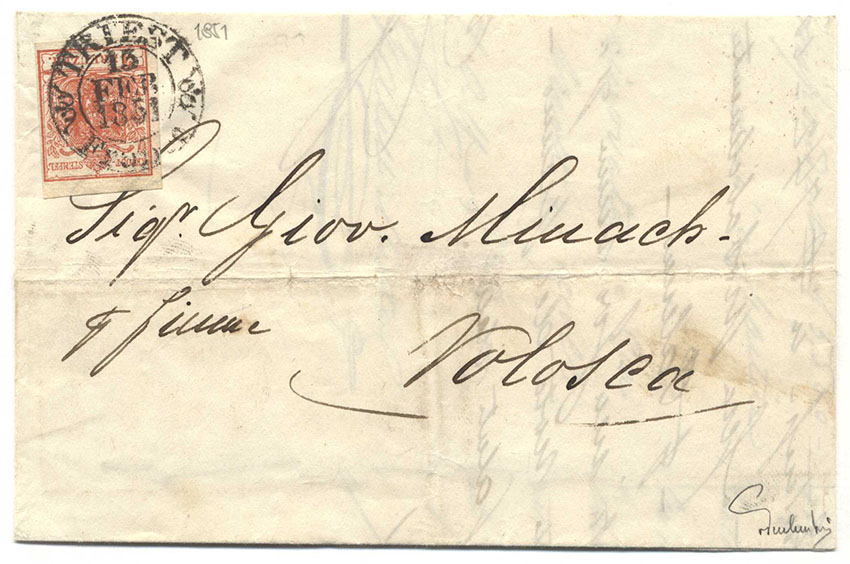 1851
TRIEST
13
FEB
1851
STEMPEL
Sigr. Giov. Minach.
p Fiume
Volosca